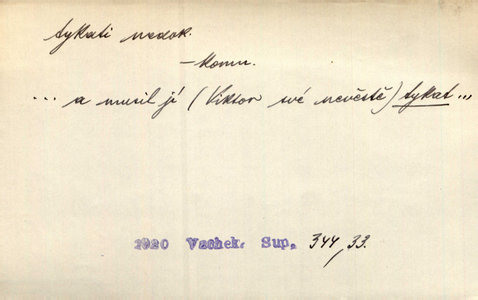 tykati nedok.
– komu.
... a musil jí (Viktor své nevěstě) tykat ...
1920 Vachek. Sup. 344,33.